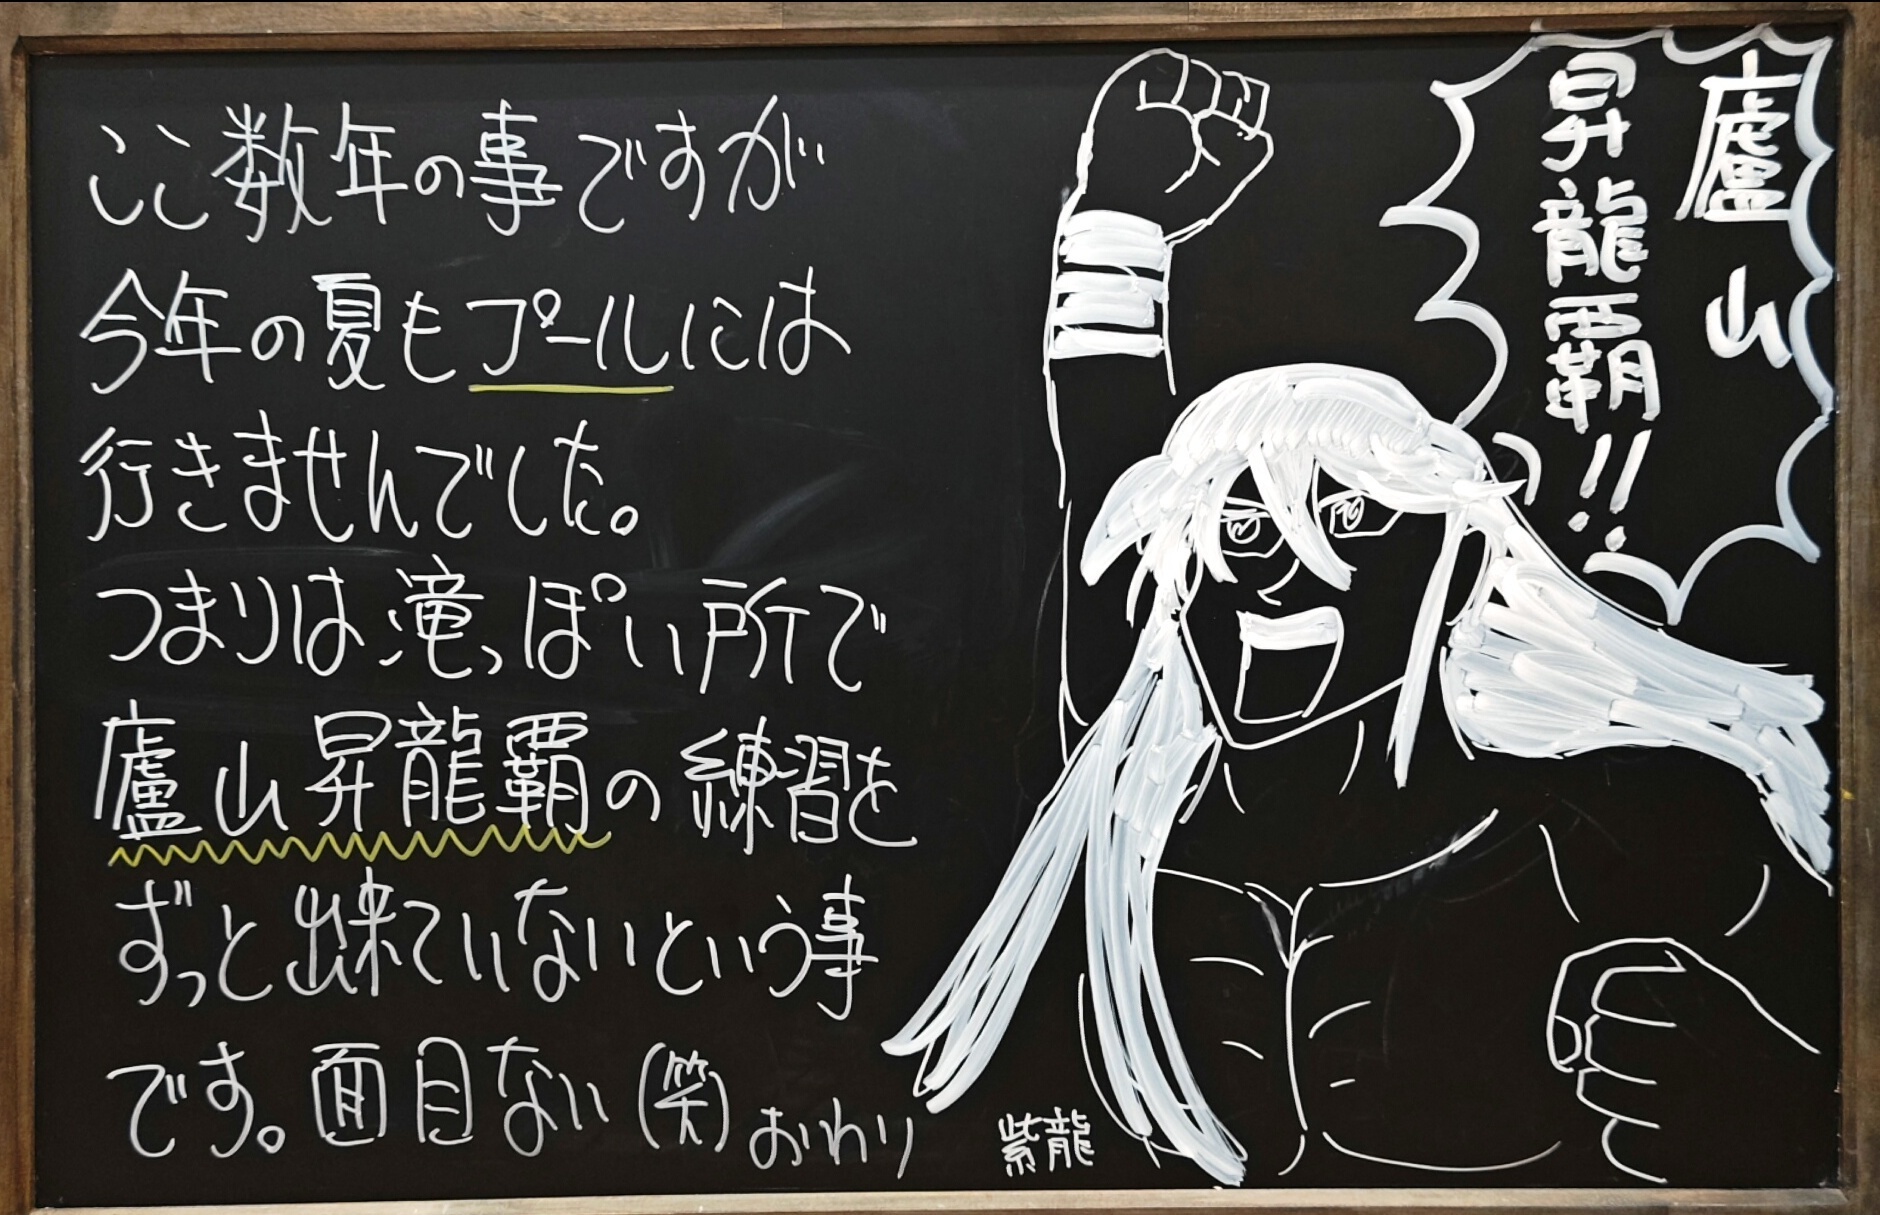 ここ数年の事ですが
今年の夏もプールには
行きませんでした。
つまりは滝っぽい所で
廬山昇龍覇の練習を
ずっと出来ていないという事
です。面目ない(笑)おわり
廬山
昇龍覇!!
紫龍